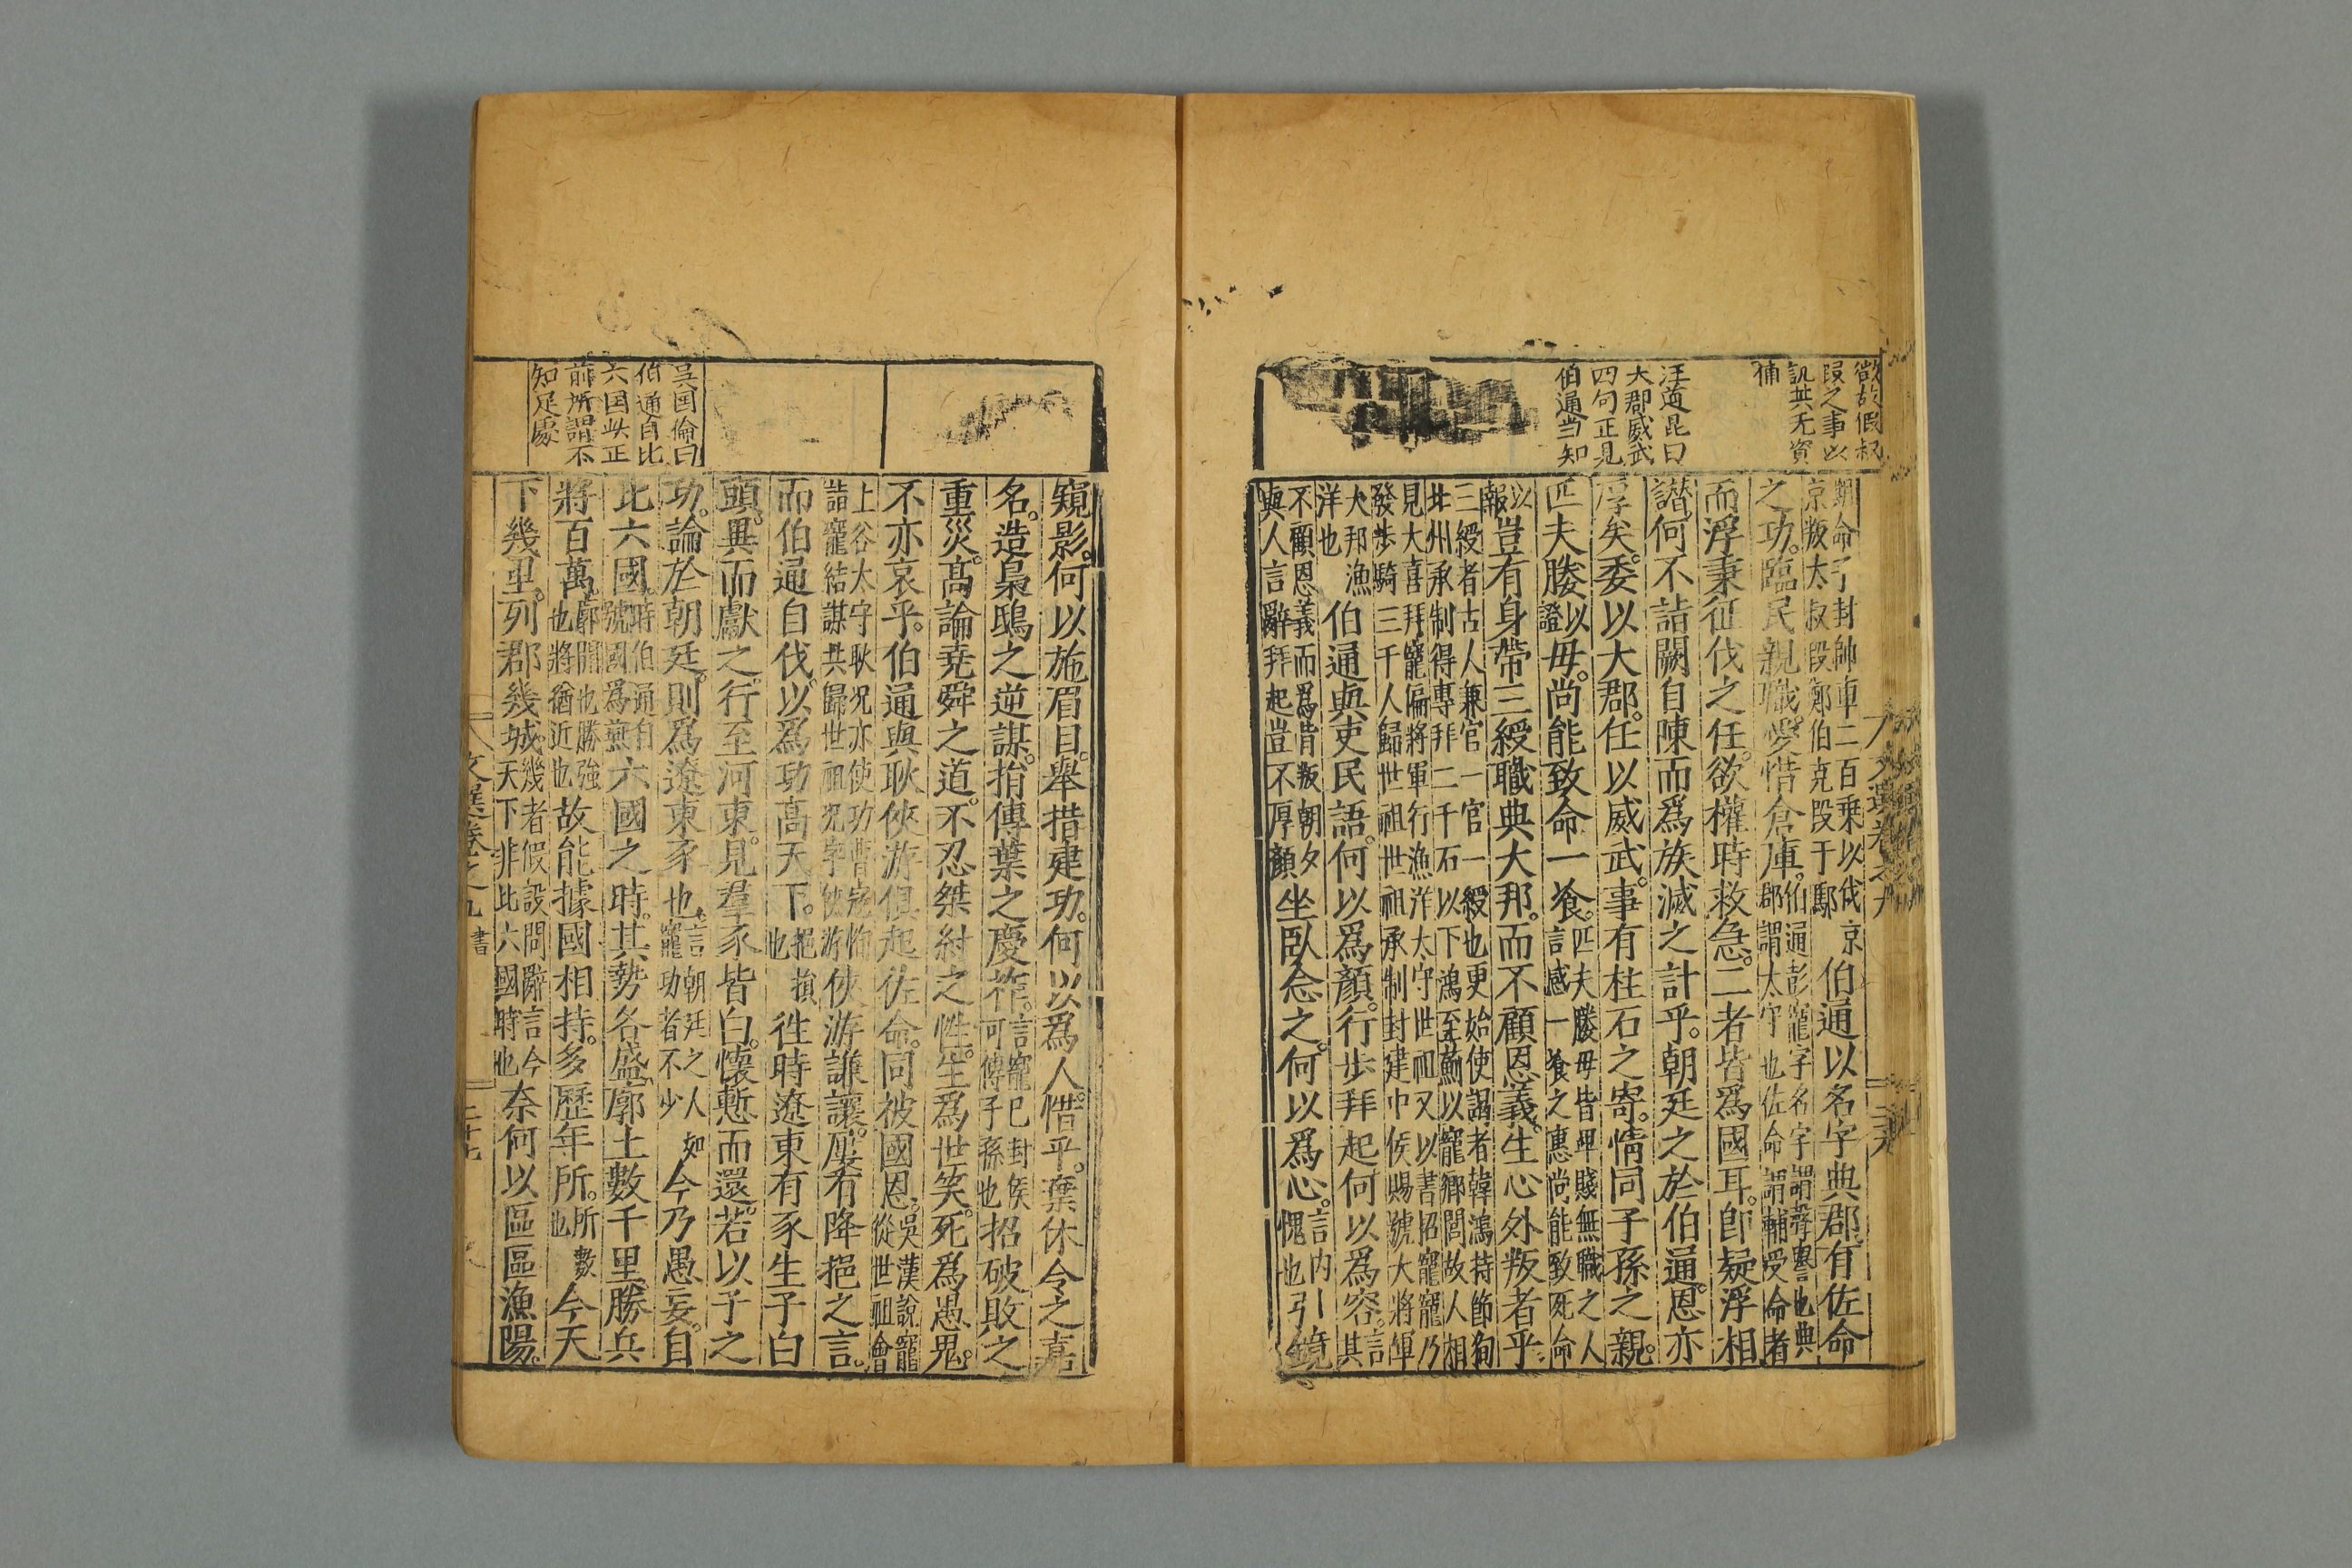 欲故假叔
段之事以
訊其无資
補
汪道昆曰
大郡威武
四句正見
伯通當知
朝命子封帥車二百乘以伐京
京叛太叔段鄭伯克段于鄢
伯通以名字典郡有佐命
之功臨民親職愛惜倉庫
伯通彭寵字名字謂聲譽也典
郡謂太守也佐命謂輔受命者
而浮秉征伐之任欲權時救急二者皆爲國耳卽疑浮相
譖何不詣闕自陳而爲族滅之計乎朝廷之於伯通恩亦
厚矣委以大郡任以威武事有柱石之寄情同子孫之親
匹夫媵以
證
母尚能致命一飡
匹夫媵母皆卑賤無職之人
言感一飡之惠尚能致死命
以
報
豈有身帶三綬職典大邦而不顧恩義生心外叛者乎
三綬者古人兼官一官一綬也更始使謁者韓鴻持節徇
北州承制得專拜二千石以下鴻至薊以寵鄉閭故人相
見大喜拜寵偏將軍行漁洋太守世祖又以書招寵寵乃
發步騎三千人歸世祖世祖承制封建中侯賜號大將軍
大邦漁
洋也
伯通與吏民語何以爲顏行步拜起何以爲容
言
其
不顧恩義而爲背叛朝夕
與人言辭拜起豈不厚顏
坐臥念之何以爲心
言内
愧也
引鏡
窺影何以施眉目舉措建功何以爲人惜乎棄休令之嘉
名造梟鴟之逆謀捐傳葉之慶祚
言寵已封侯
可傳子孫也
招破敗之
重災高論堯舜之道不忍桀紂之性生爲世笑死爲愚鬼
不亦哀乎伯通與耿俠游俱起佐命同被國恩
吳漢說寵
從世祖會
上谷太守耿况亦使功曹寇恂
詣寵結謀共歸世祖况字俠游
俠游謙讓屢有降挹之言
而伯通自伐以爲功高天下
挹損
也
徃時遼東有豕生子白
頭異而獻之行至河東見羣豕皆白懷慙而還若以子之
功論於朝廷則爲遼東豕也
言朝廷之人如
寵功者不少
今乃愚妄自
比六國
時伯通自
號國爲燕
六國之時其勢各盛廓土數千里勝兵
將百萬
廓開也勝強
也將猶近也
故能據國相持多歷年所
所數
也
今天
下幾里列郡幾城
幾者假設問辭言今
天下非比六國時也
奈何以區區漁陽
吳国倫曰
伯通自比
六国此正
前所謂不
知足處
文選卷之九
書
二十七